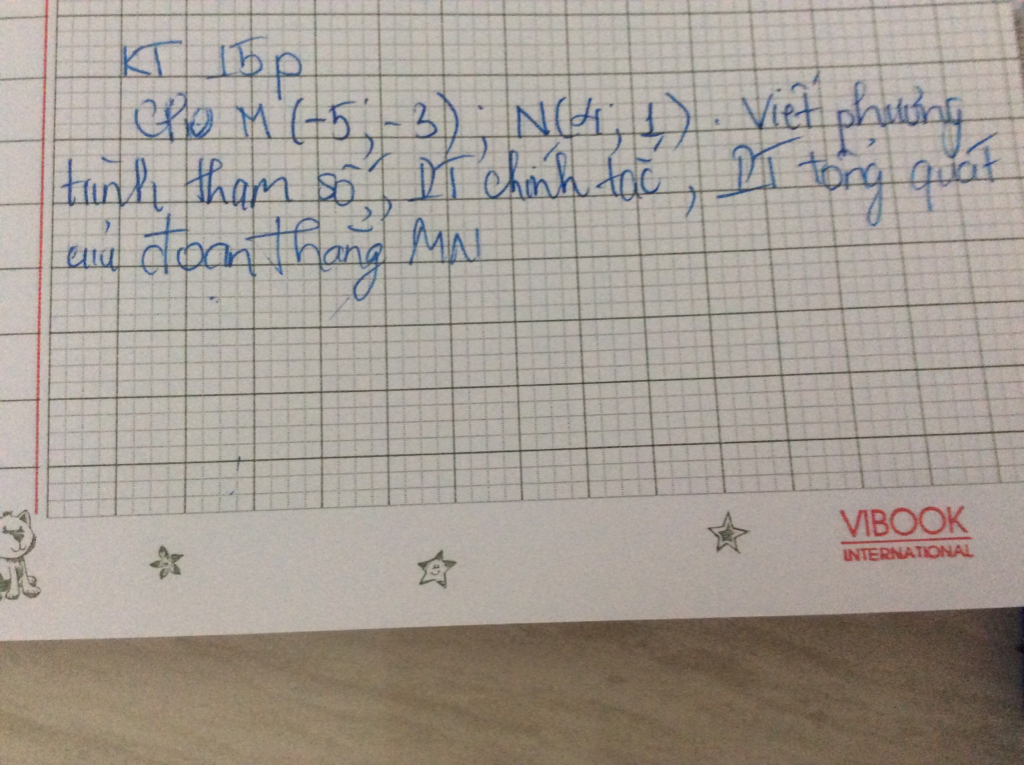 KT 15p
Cho M (-5; -3); N(4; 1). Viết phương
trình tham số, PT chính tắc, PT tổng quát
của đoạn thẳng MN
VIBOOK
INTERNATIONAL